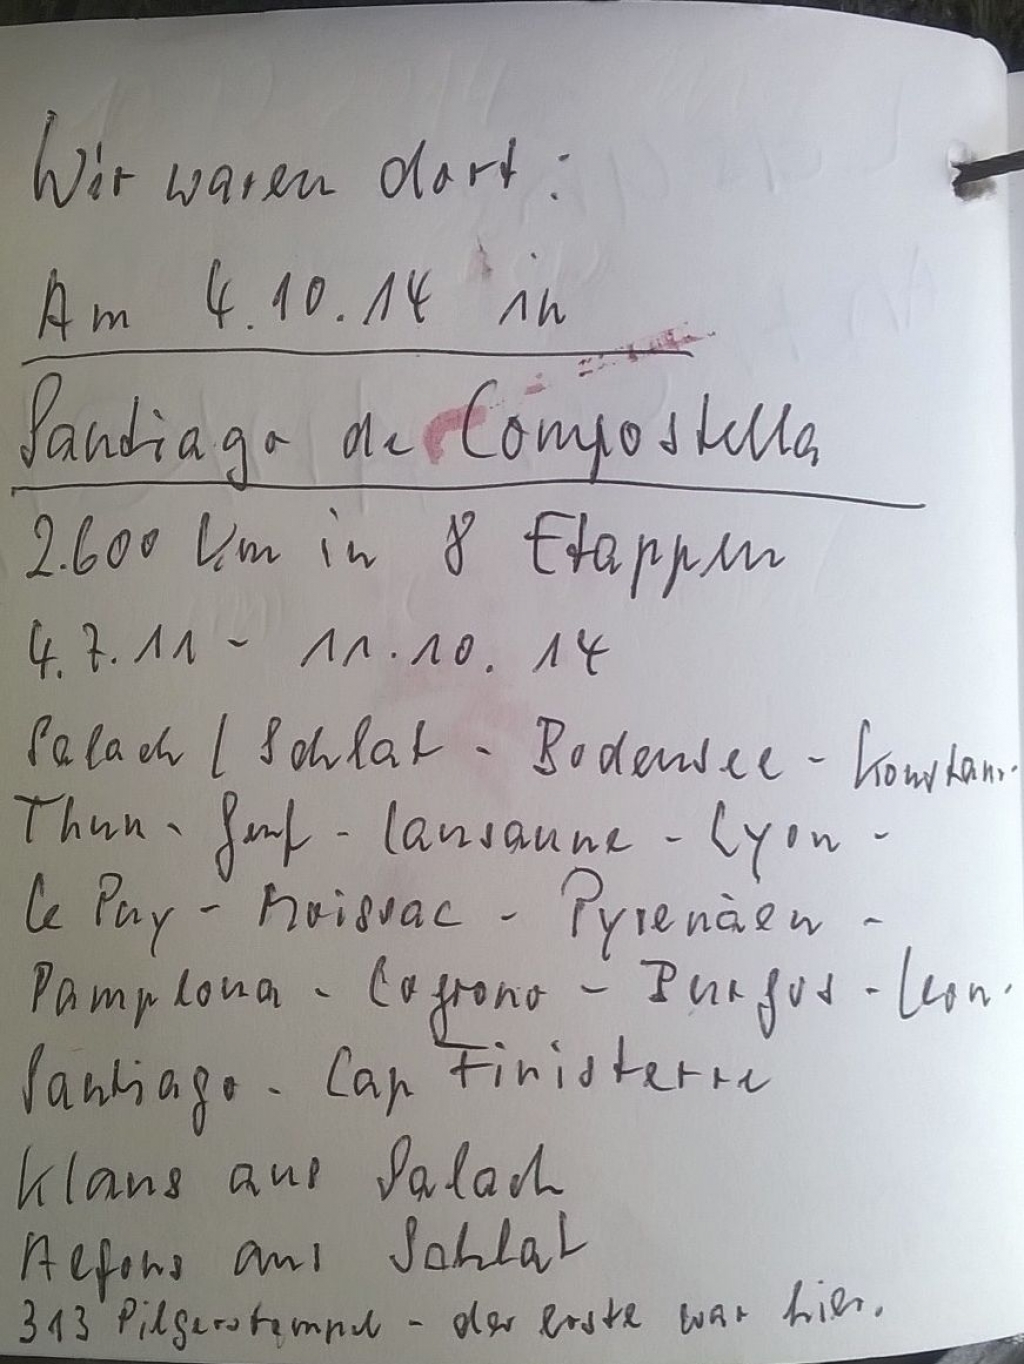 Wir waren dort:
Am 4.10.14 in
Santiago de Compostella
2.600 km in 8 Etappen
4.7.11 - 11.10.14
Salach / Schlat - Bodensee - Konstanz-
Thun - Genf - Lausanne - Lyon -
Le Puy - Moissac - Pyrenäen -
Pamplona - Logrono - Burgos - Leon -
Santiago - Cap Finisterre
Klaus aus Salach
Alfons aus Schlat
313 Pilgerstempel - der erste war hier.